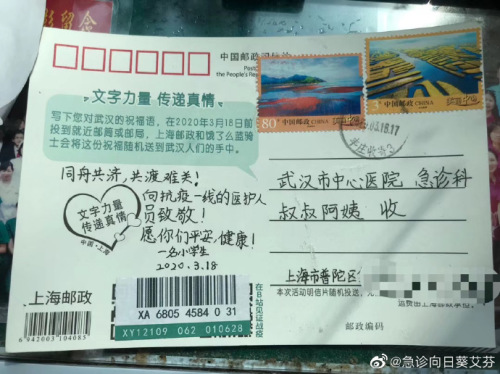 中国邮政
the People's Rep
文字力量 传递真情
写下您对武汉的祝福语，在2020年3月18日前
投到就近邮筒或邮局，上海邮政和饿了么蓝骑
士会将这份祝福随机送到武汉人们的手中。
80分 中国邮政 CHINA
中国邮政 CHINA
03.18.17
同舟共济，共渡难关！
向抗疫一线的医护人
员致敬！
愿你们平安，健康！
一名小学生
2020.3.18
文字力量
传递真情
中国·上海
武汉市中心医院 急诊科
叔叔阿姨 收
上海市普陀区
本次活动明信片随机投递，
邮政编码
上海邮政
6942003104085
XA 6805 4584 0 31
XY12109 062 010628
在B站见证战疫
@急诊向日葵艾芬